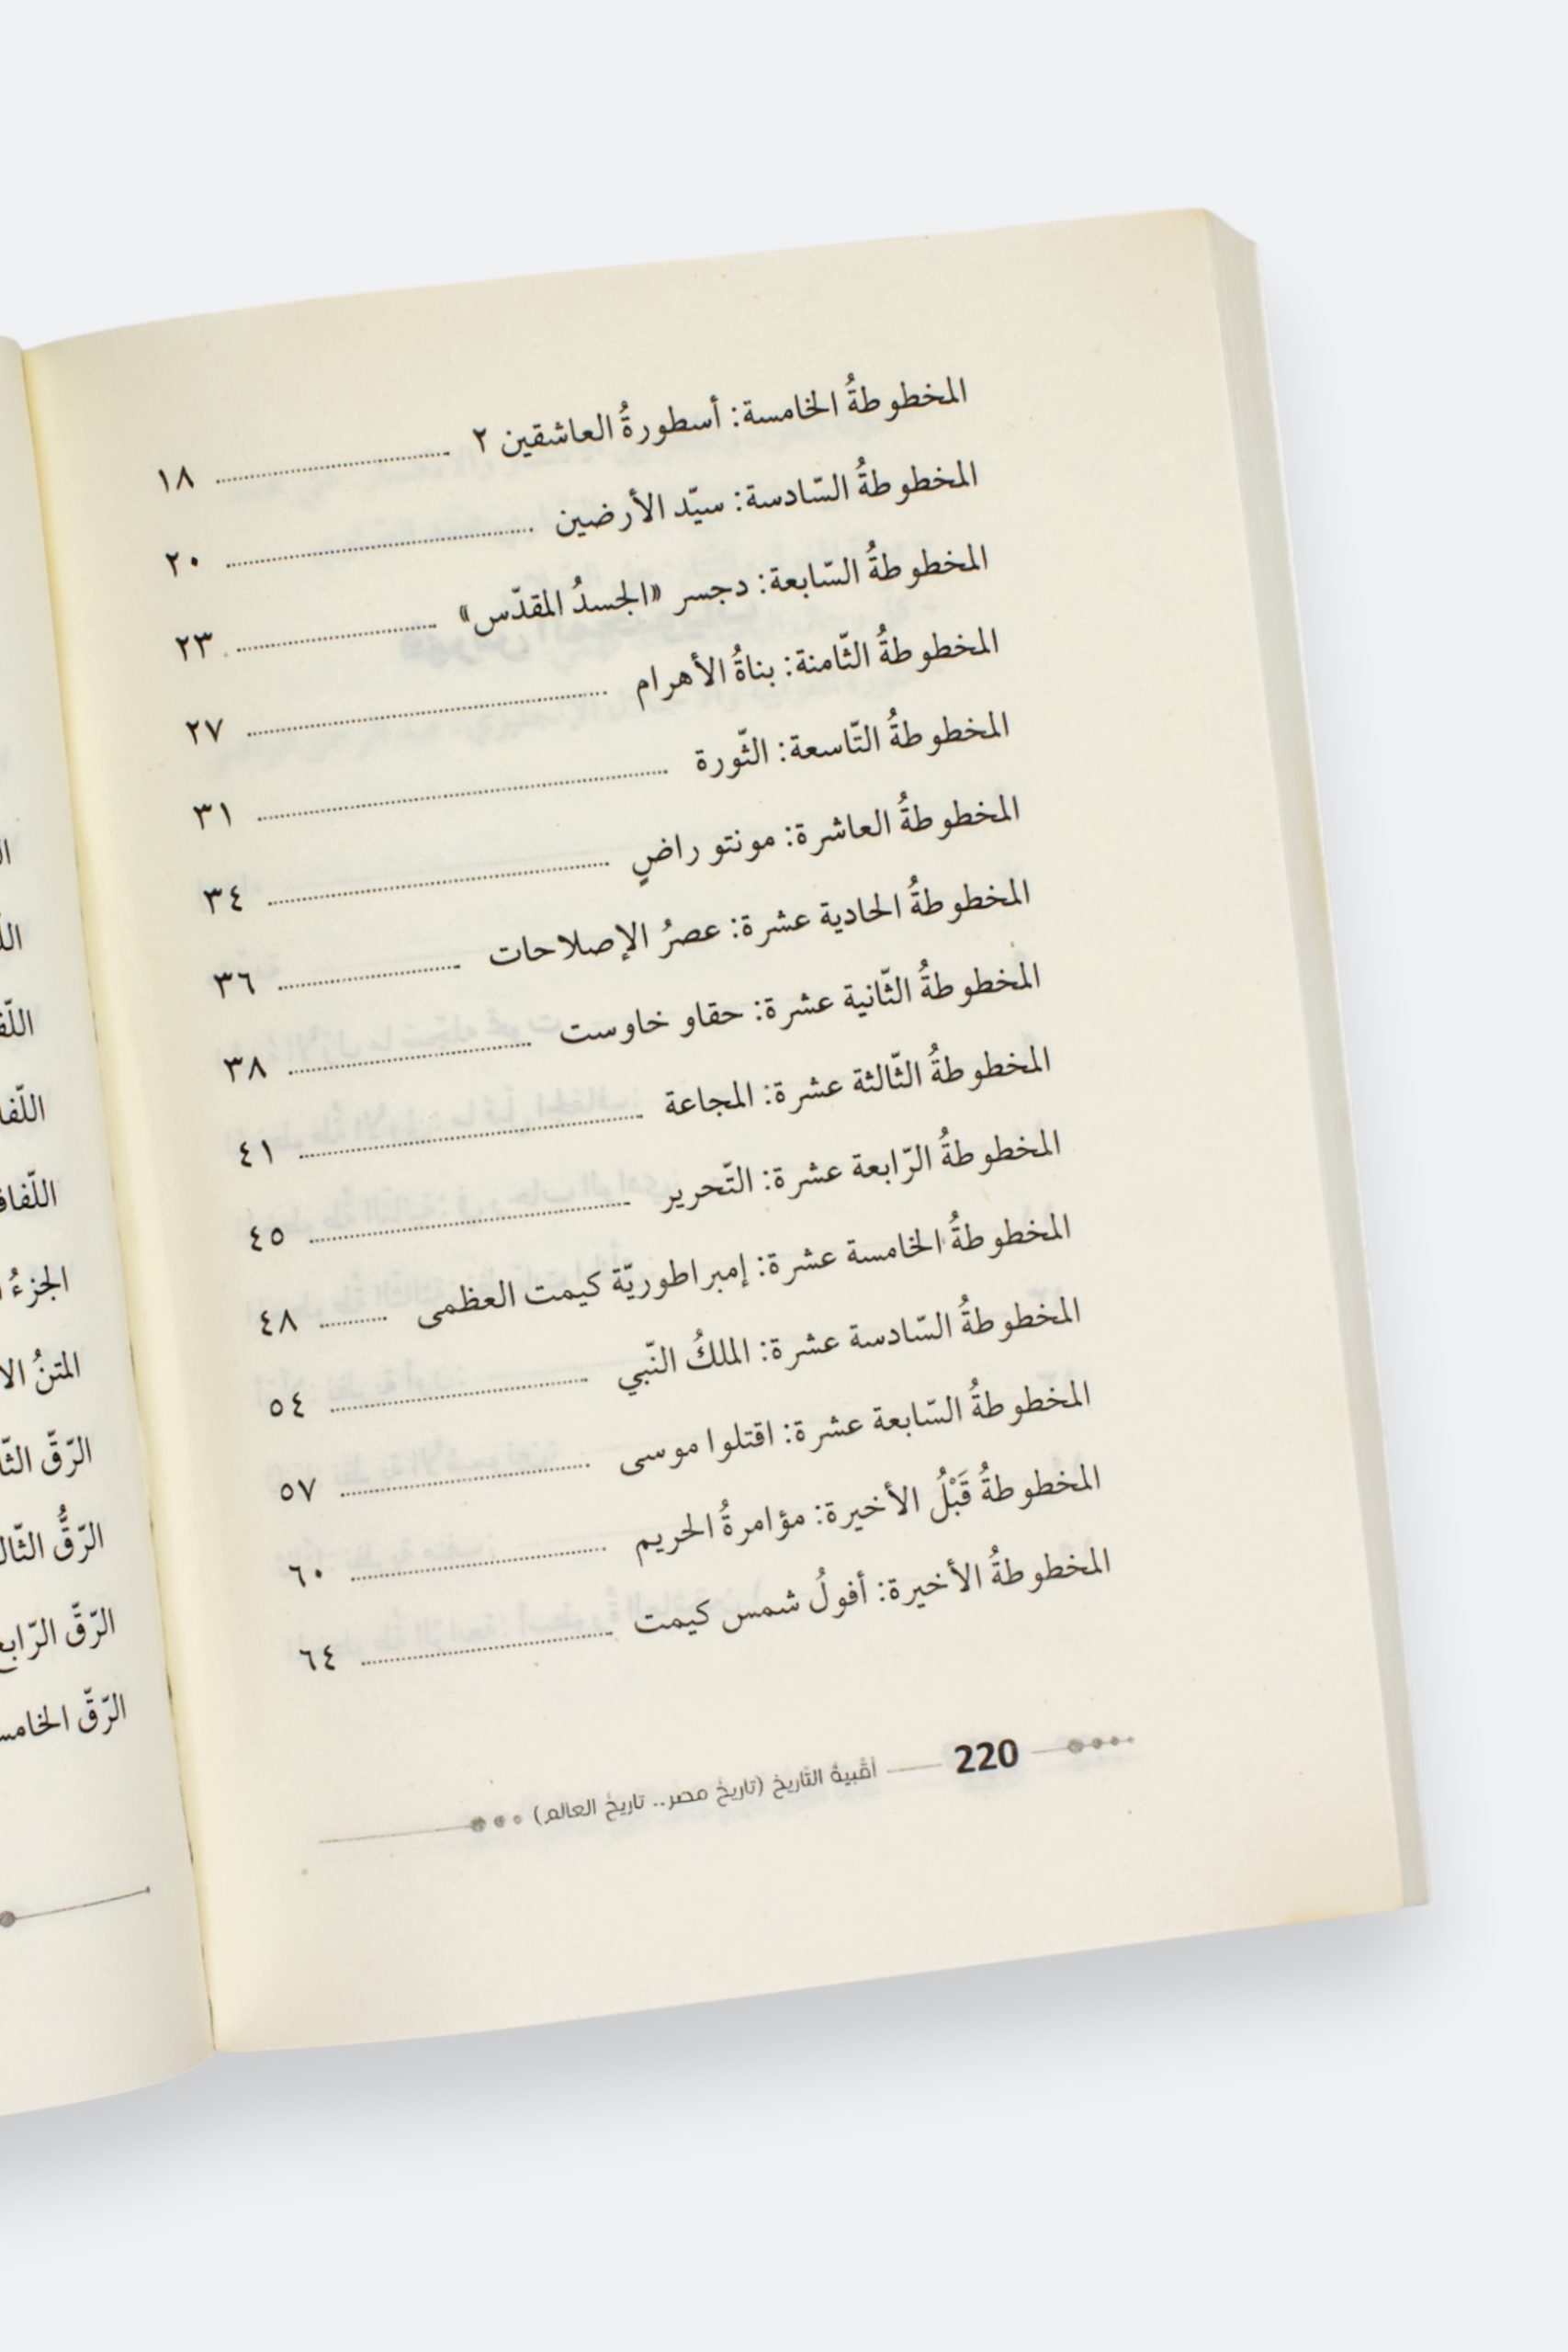 المخطوطةُ الخامسة: أسطورةُ العاشقين ٢ ........ ١٨
المخطوطةُ السّادسة: سيّد الأرضين ........ ٢٠
المخطوطةُ السّابعة: دجسر «الجسدُ المقدّس» ........ ٢٣
المخطوطةُ الثّامنة: بناةُ الأهرام ........ ٢٧
المخطوطةُ التّاسعة: الثّورة ........ ٣١
المخطوطةُ العاشرة: مونتو راضٍ ........ ٣٤
المخطوطةُ الحادية عشرة: عصرُ الإصلاحات ........ ٣٦
المخطوطةُ الثّانية عشرة: حقاو خاوست ........ ٣٨
المخطوطةُ الثّالثة عشرة: المجاعة ........ ٤١
المخطوطةُ الرّابعة عشرة: التّحرير ........ ٤٥
المخطوطةُ الخامسة عشرة: إمبراطوريّة كيمت العظمى ........ ٤٨
المخطوطةُ السّادسة عشرة: الملكُ النّبي ........ ٥٤
المخطوطةُ السّابعة عشرة: اقتلوا موسى ........ ٥٧
المخطوطةُ قَبْلُ الأخيرة: مؤامرةُ الحريم ........ ٦٠
المخطوطةُ الأخيرة: أفولُ شمس كيمت ........ ٦٤
220 أقبية التّاريخ (تاريخ مصر.. تاريخ العالم)
الجزءُ
المتنُ
الرّقّ
الرّقُّ
الرّقّ
الرّقّ